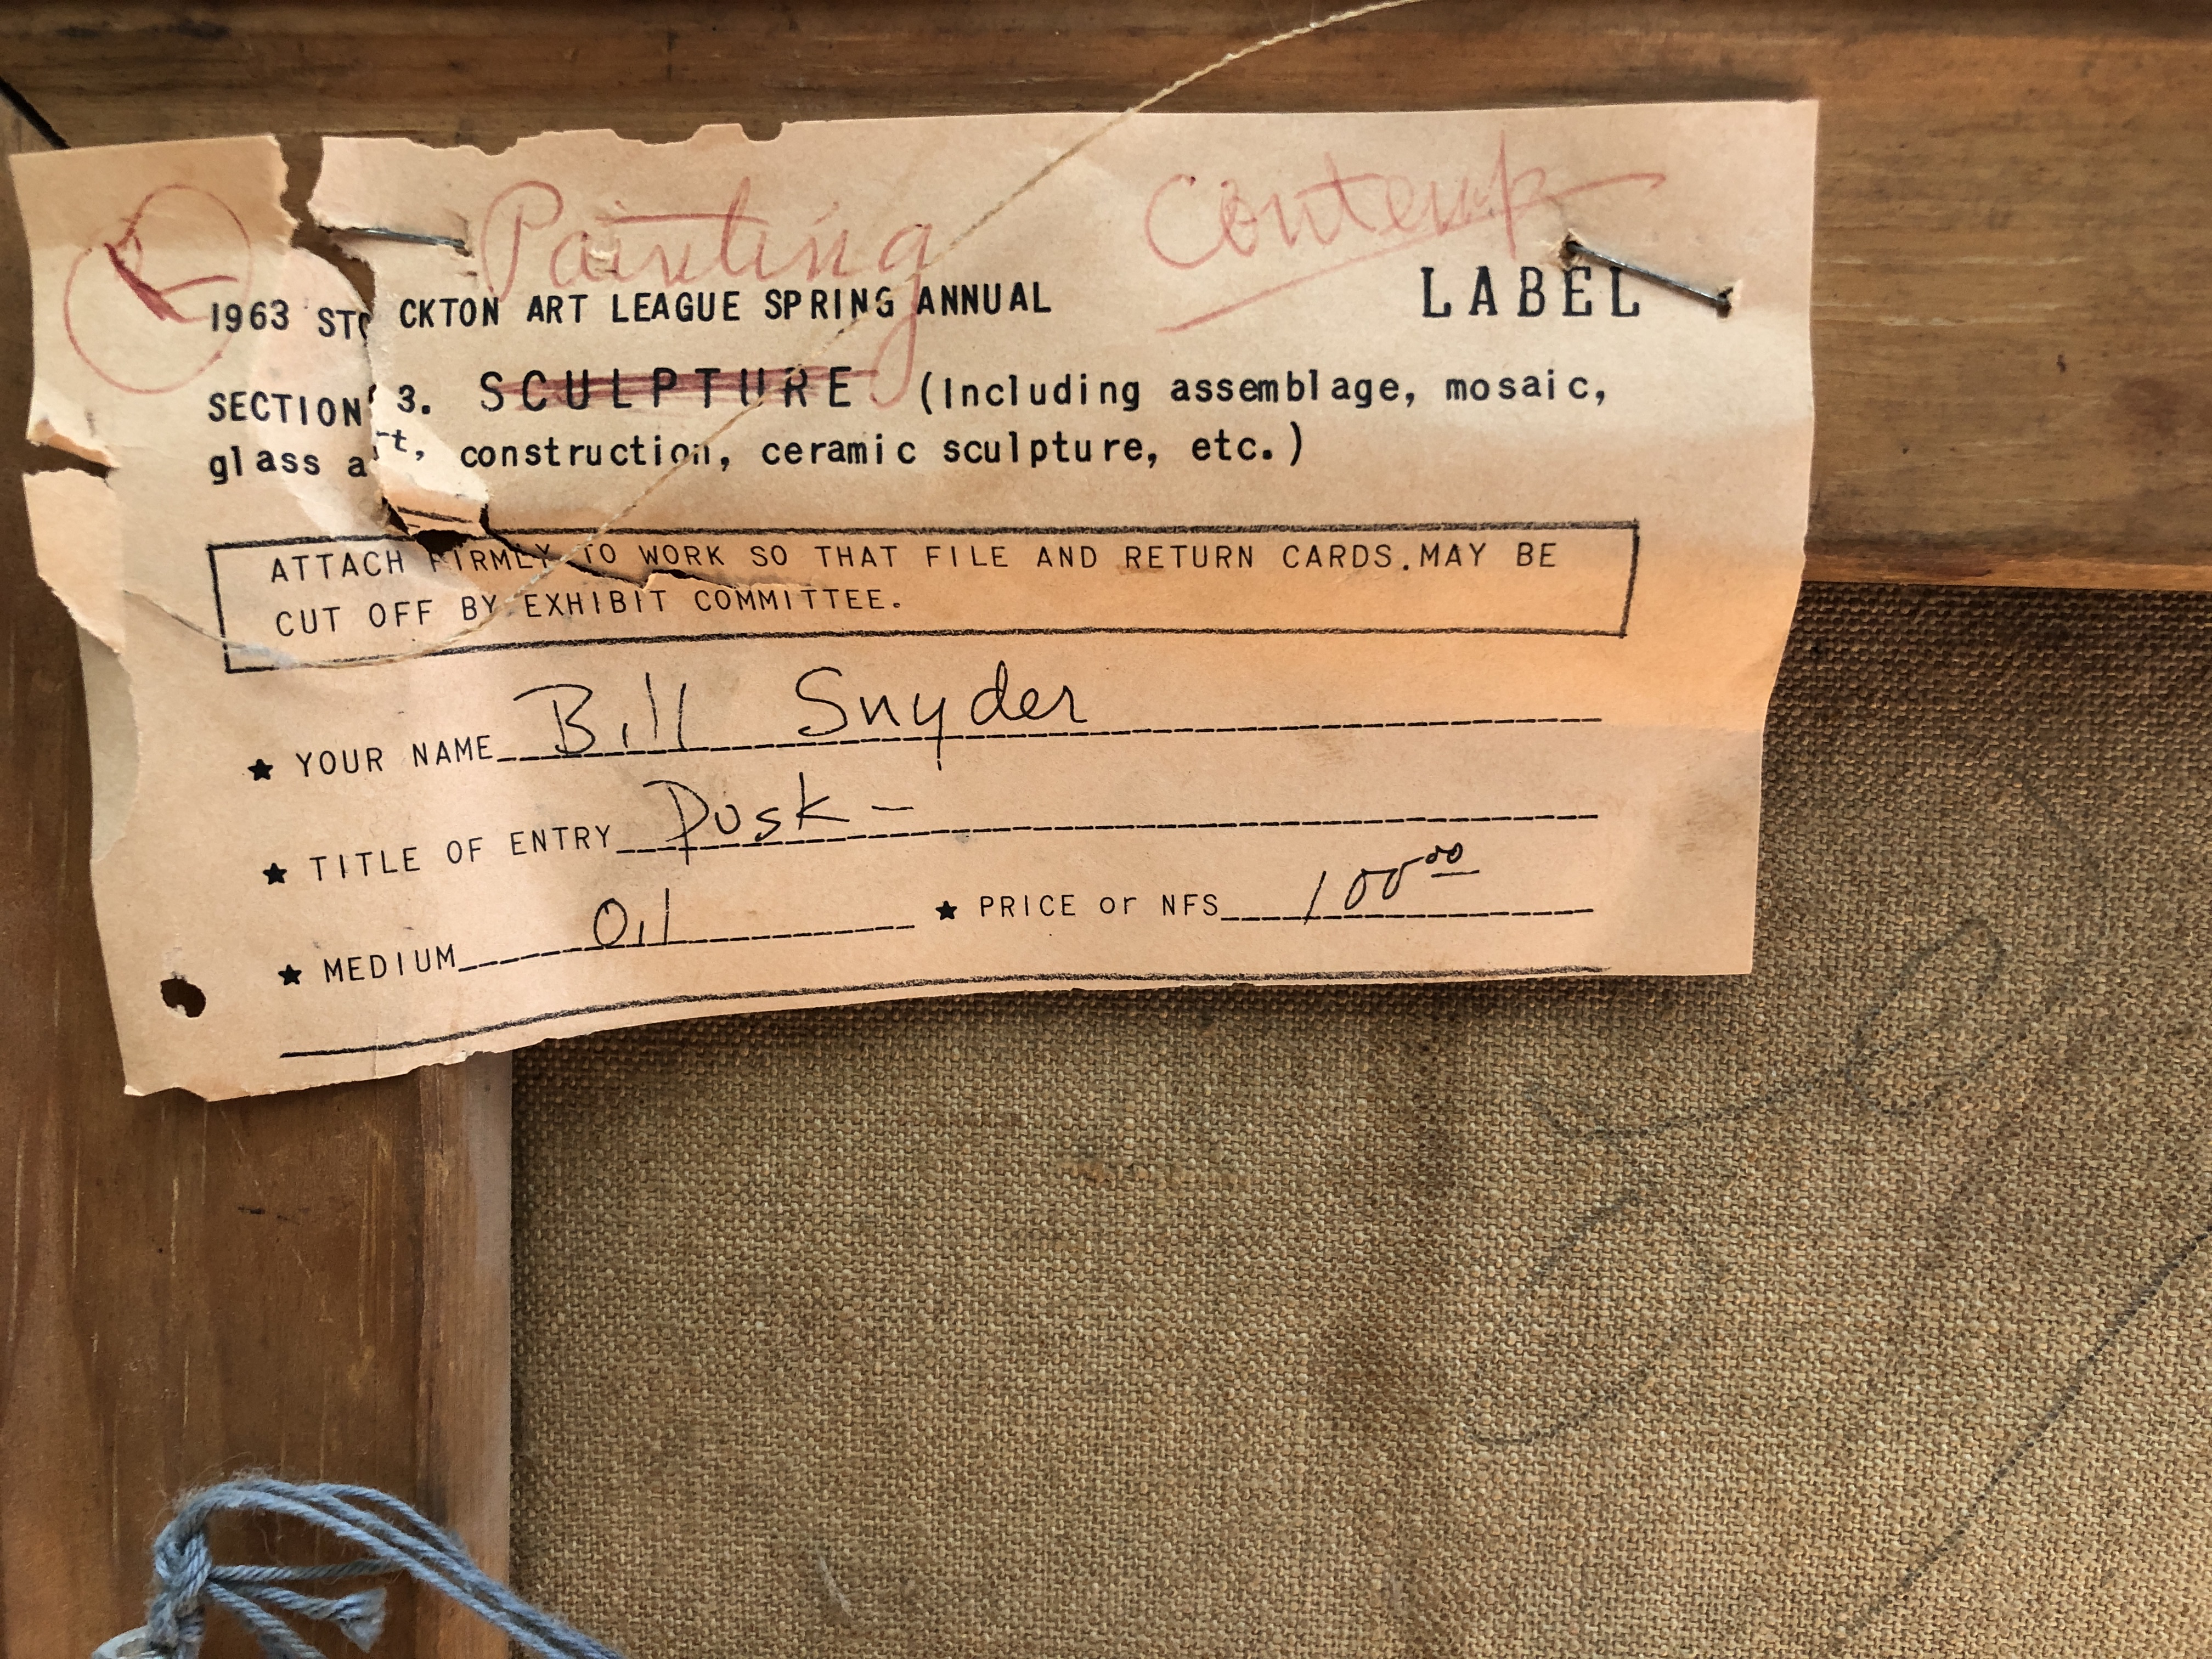 Painting Contemp
1963 STOCKTON ART LEAGUE SPRING ANNUAL LABEL
SECTION 3. SCULPTURE (Including assemblage, mosaic,
glass art, construction, ceramic sculpture, etc.)
ATTACH FIRMLY TO WORK SO THAT FILE AND RETURN CARDS.MAY BE
CUT OFF BY EXHIBIT COMMITTEE.
★ YOUR NAME Bill Snyder
★ TITLE OF ENTRY Dusk -
★ MEDIUM Oil ★ PRICE or NFS 100 00